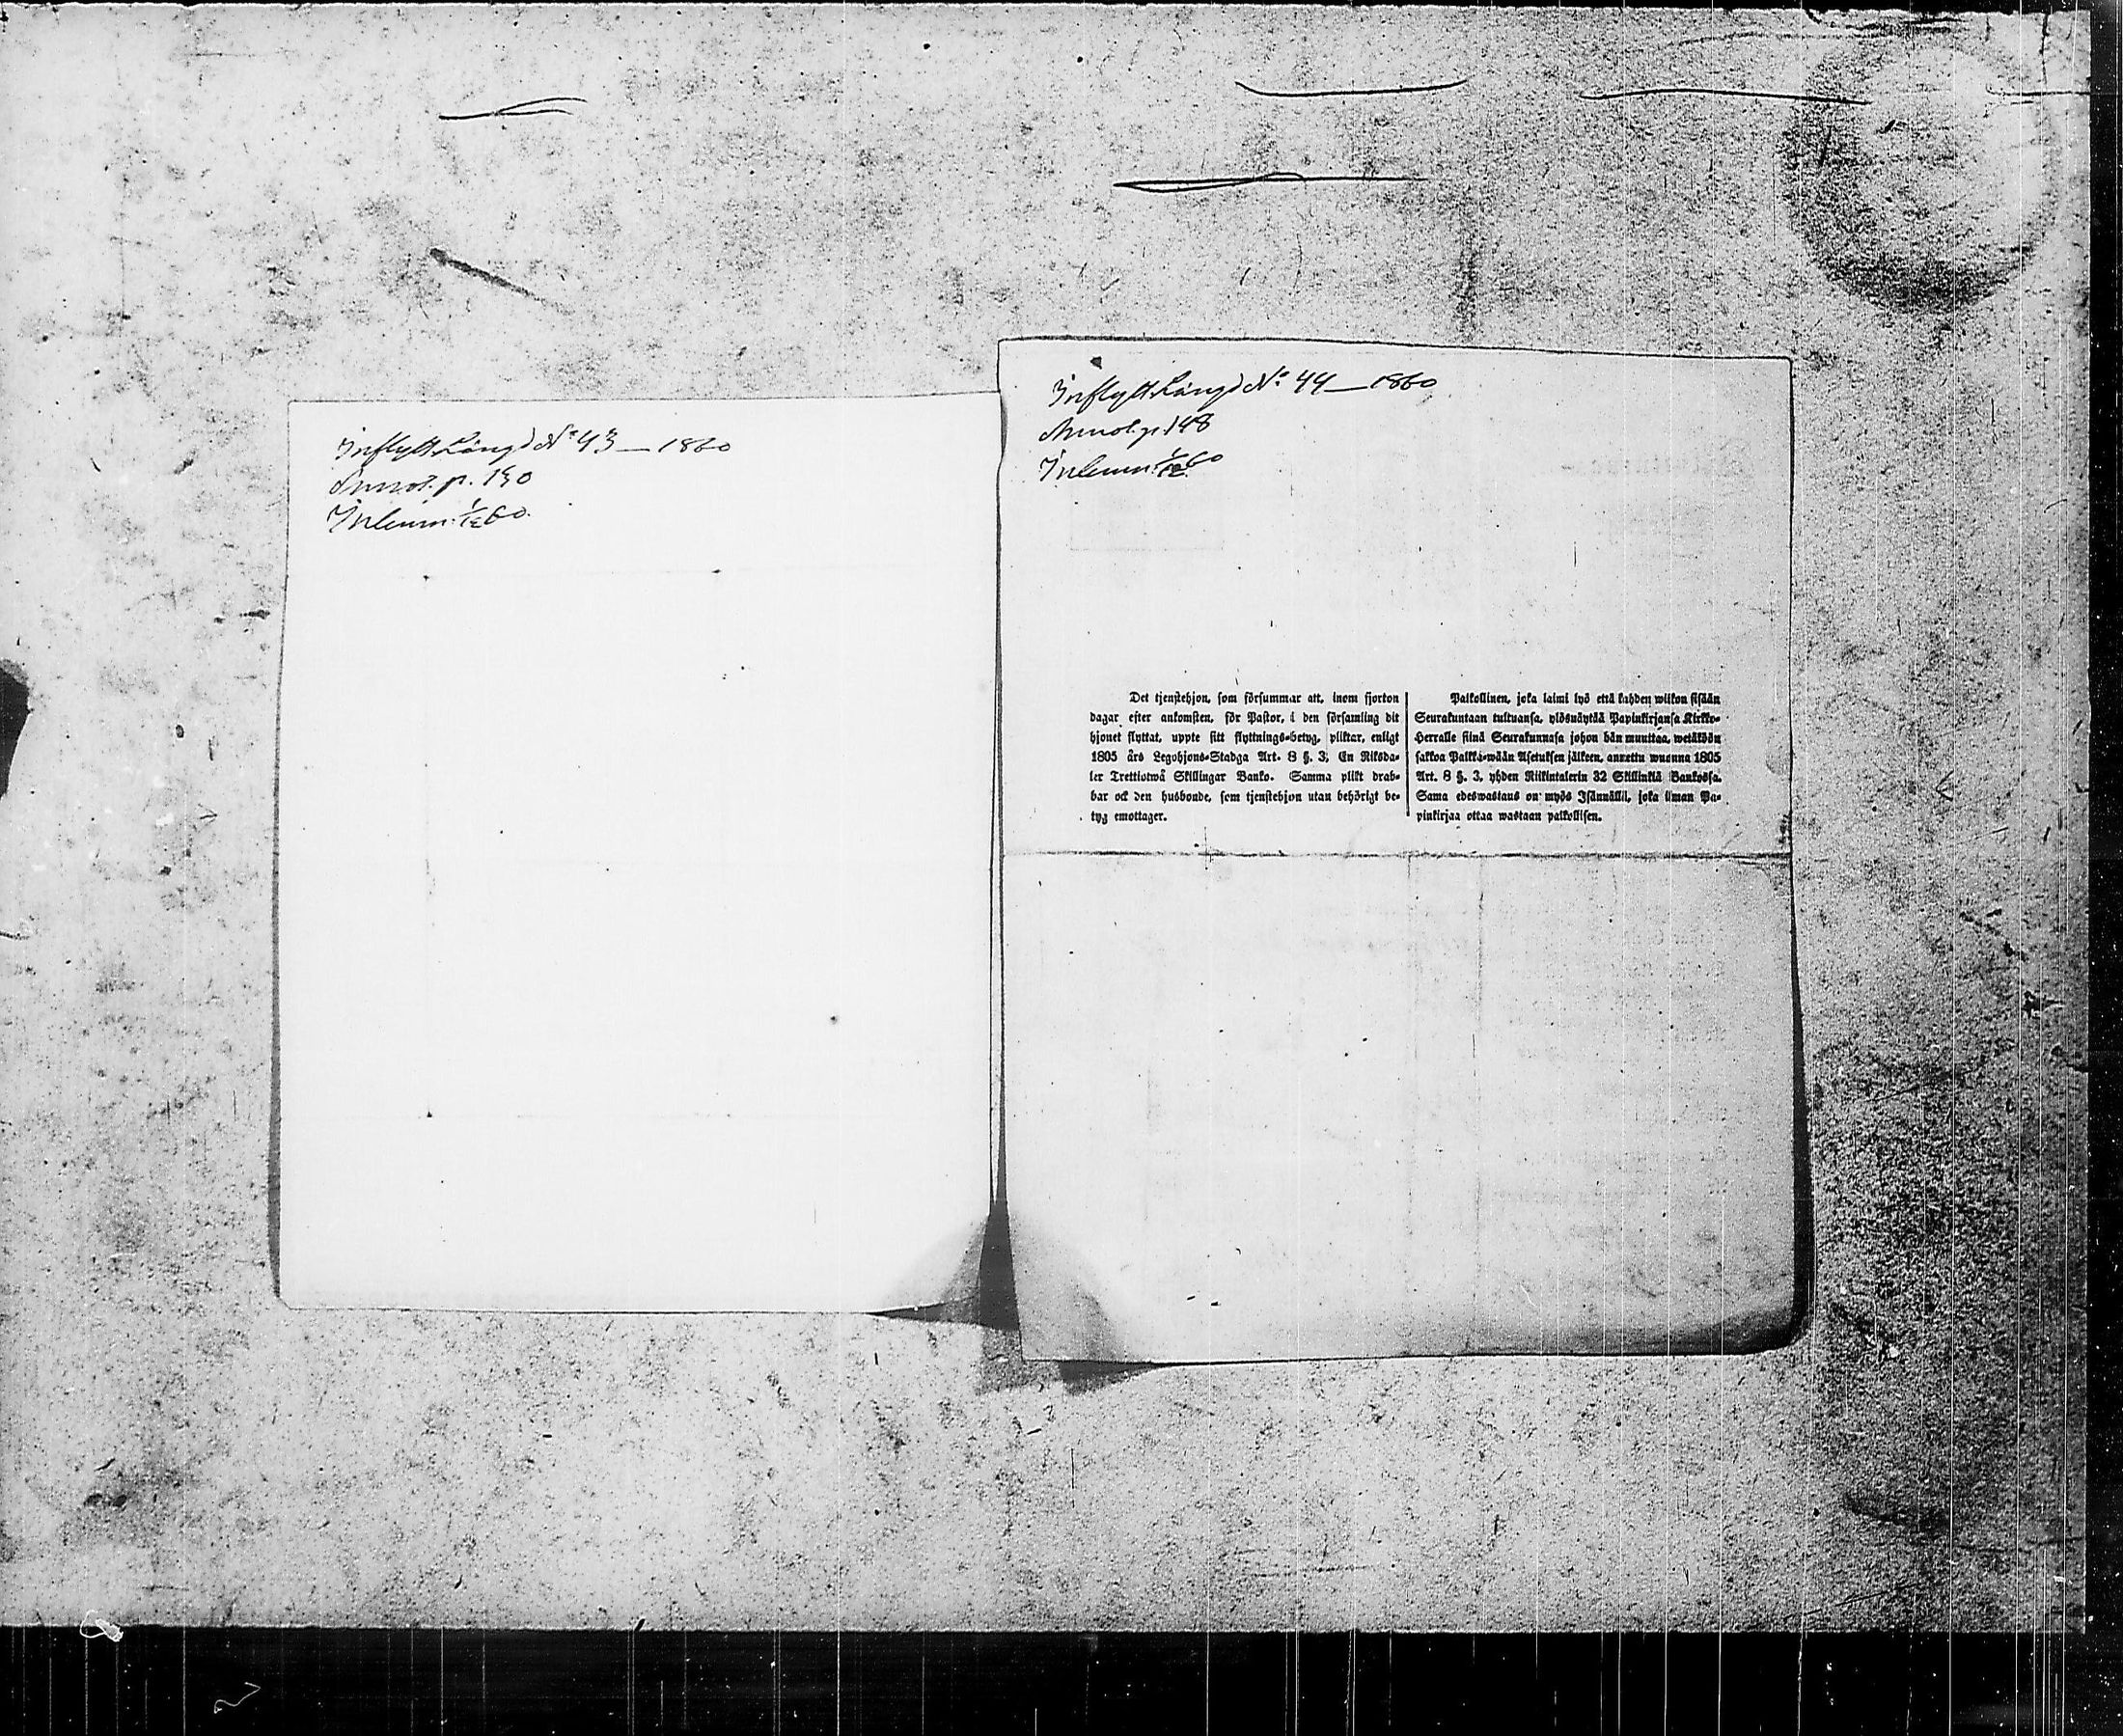 Inflytt.Längd N:o 43 — 1860
Annot. p. 190
Inlemn. 1/12 60.
Inflytt.Längd N:o 44 — 1860
Annot. p. 148
Inlemn. 1/12 60
Det tjenstehjon, som försummar att, inom fjorton
dagar efter ankomsten, för Pastor, i den församling dit
hjonet flyttat, uppte sitt flyttnings-betyg, pliktar, enligt
1805 års Legohjons-Stadga Art. 8 §. 3, En Riksda-
ler Trettiotwå Skillingar Banko. Samma plikt drab-
bar ock den husbonde, som tjenstehjon utan behörigt be-
tyg emottager.
Palkollinen, joka laimi lyö että kahden wiikon sisään
Seurakuntaan tultuansa, ylösnäyttää Papinkirjansa Kirkko-
Herralle siinä Seurakunnasa johon hän muuttaa, wetäköön
sakkoa Palkka-wään Asetuksen jälkeen, annettu wuonna 1805
Art. 8 §. 3, yhden Riikintalerin 32 Skillinkiä Bankossa.
Sama edeswastaus on myös Isännällä, joka ilman Pa-
pinkirjaa ottaa wastaan palkollisen.